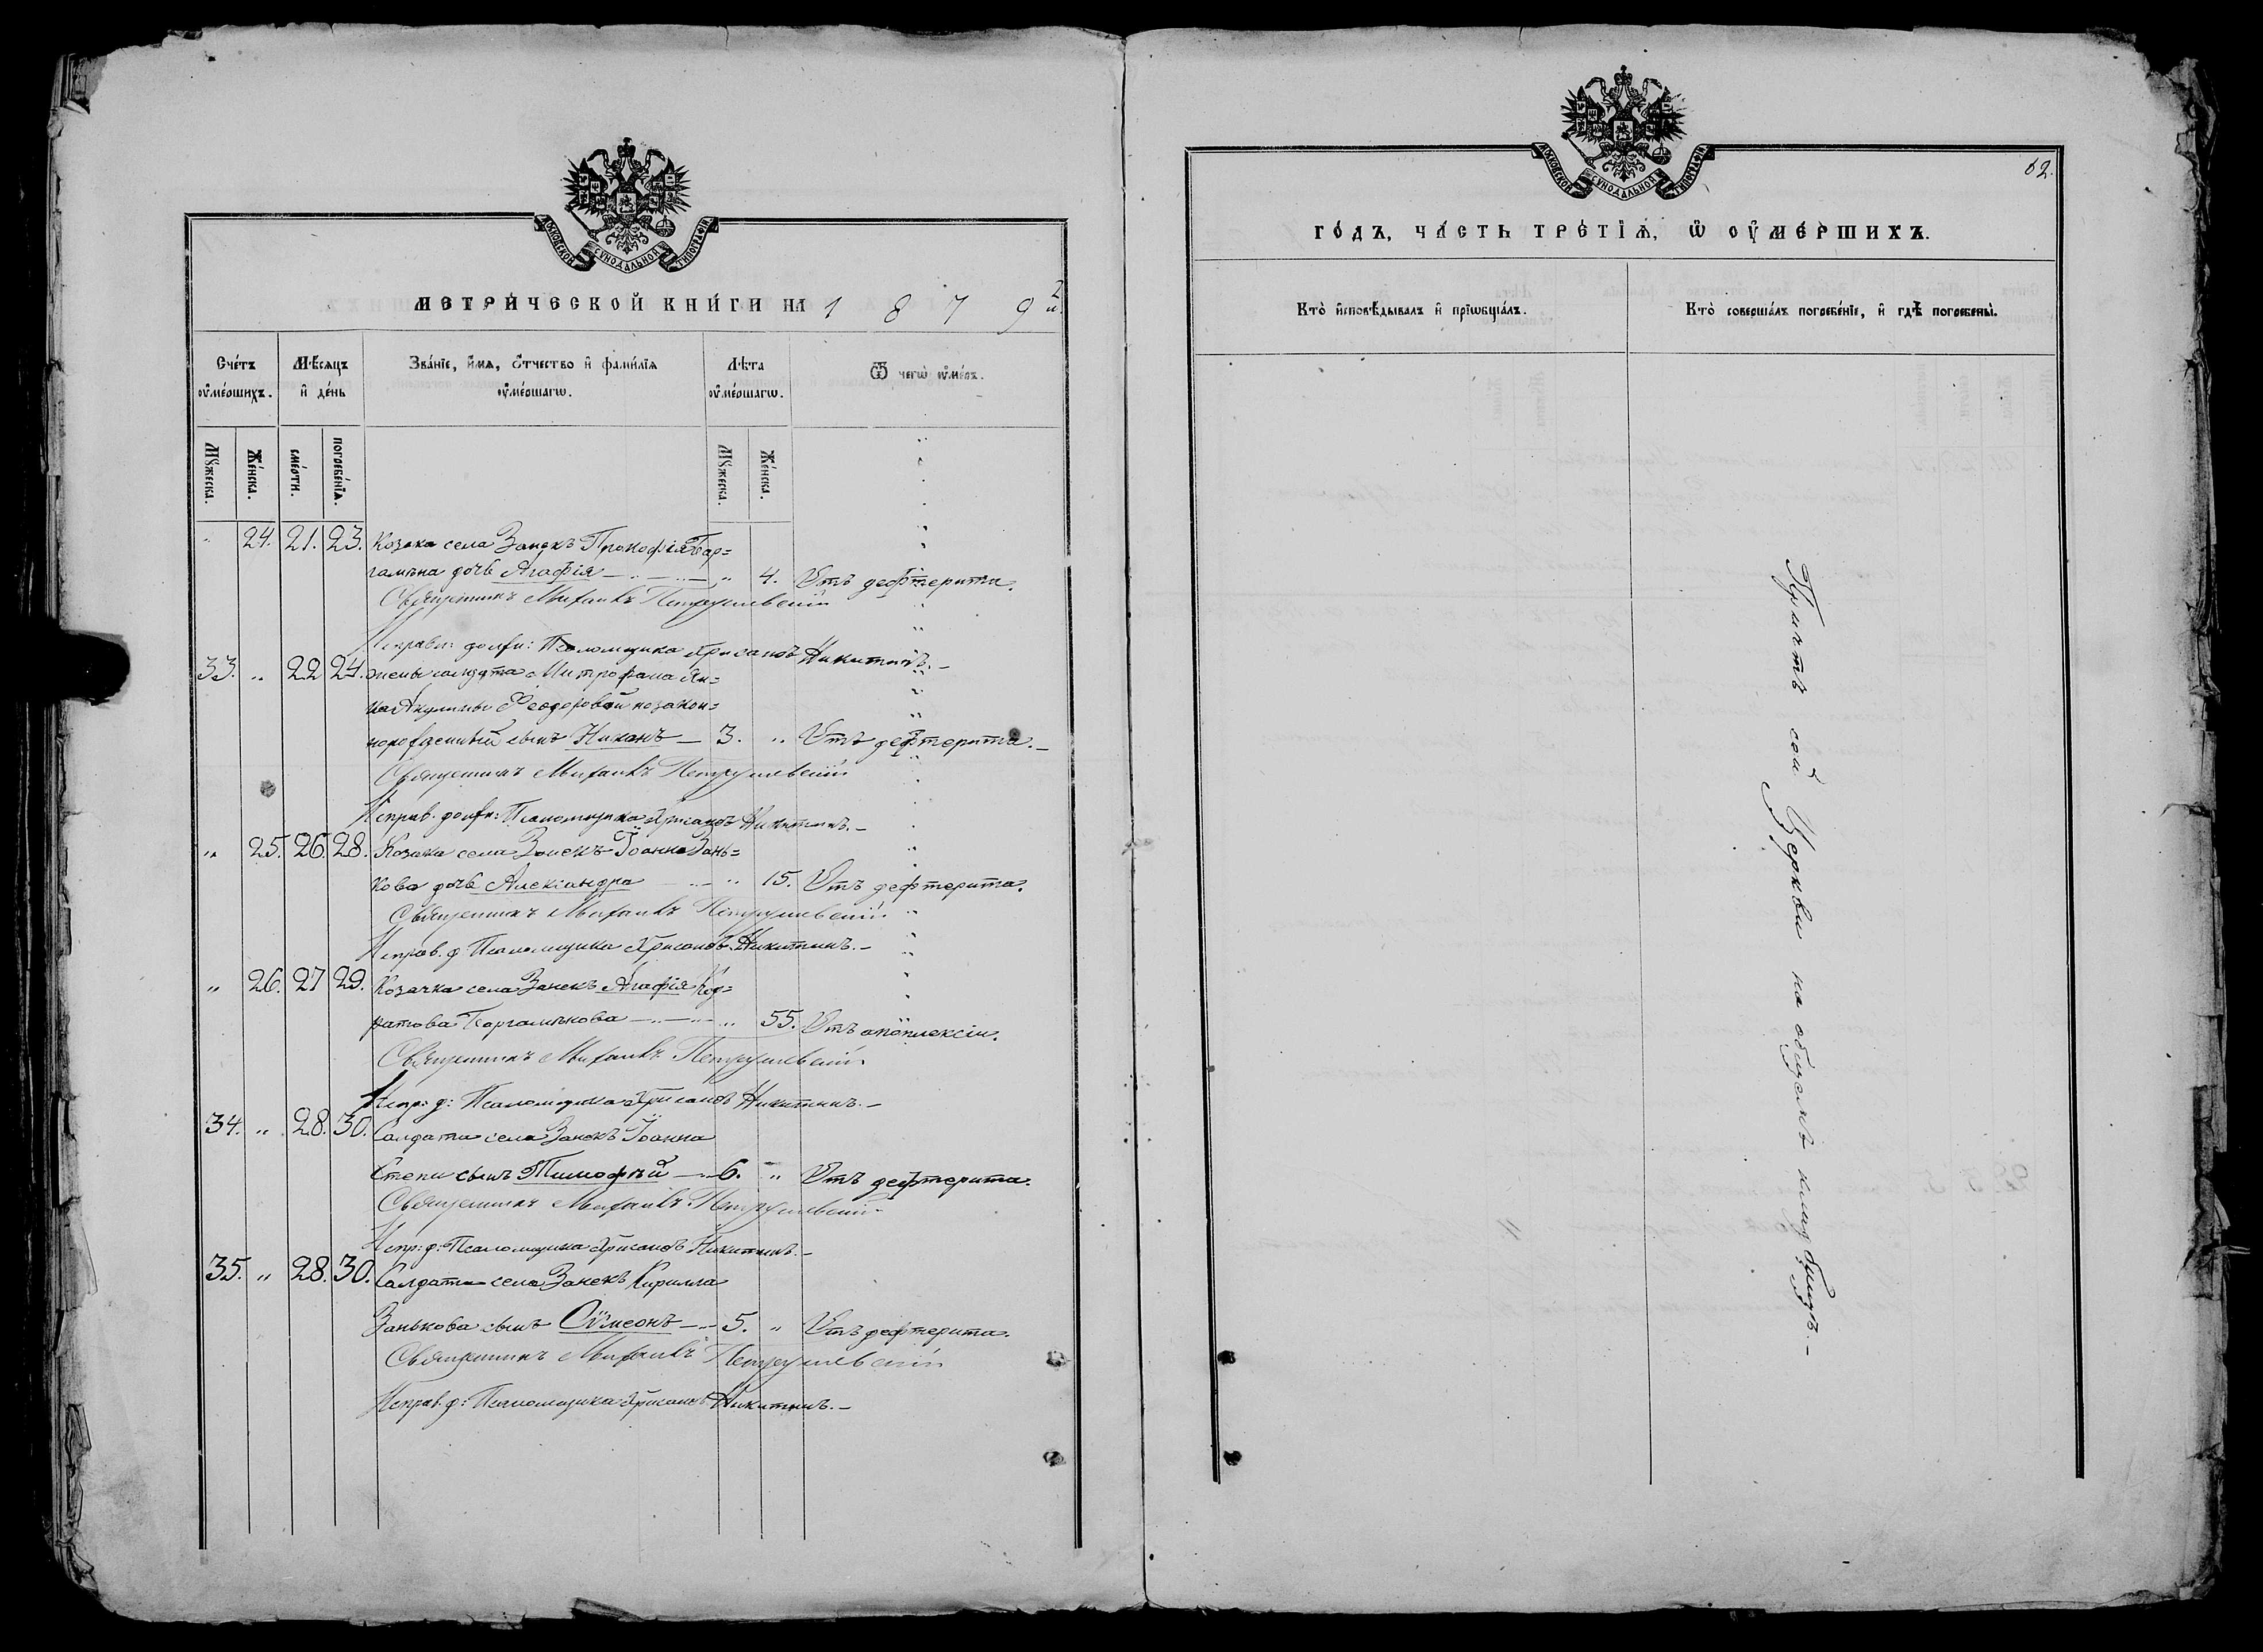 МОСКОВСКОЙ СУНОДАЛЬНОЙ ТИПОГРАФІИ.
МЕТРИЧЕСКОЙ КНИГИ НА 1 8 7 9 й
Счетъ оумершихъ.
Мѣсяцъ и день
Званіе, имя, отчество и фамилія оумершагѡ.
Лѣта оумершагѡ.
Ѿ чегѡ оумеръ.
Мꙋжеска.
Женска.
смерти.
погребенїя.
Мꙋжеска.
Женска.
" 24. 21. 23. Козака села Занекъ Прокофія Бар=
гамѣна дочь Агафія " 4. Отъ дефтерита.
Священникъ Михаилъ Петрушевскій
Исправл: долж: Псаломщика Хрисанѳъ Никитинъ.
33. " 22 24. жены солдата Митрофана
Акулины Ѳеодоровой незакон=
норожденный сынъ Никонъ 3. " Отъ дефтерита.
Священникъ Михаилъ Петрушевскій
Исправ. долж: Псаломщика Хрисанѳъ Никитинъ.
" 25. 26. 28. Козака села Занекъ Іоанна Зань=
кова дочь Александра " 15. Отъ дефтерита.
Священникъ Михаилъ Петрушевскій
Исправ. д Псаломщика Хрисанѳъ Никитинъ.
" 26. 27 29. Козачка села Занекъ Агафія Код=
ратова Баргамѣнова " 55. Отъ апоплексіи.
Священникъ Михаилъ Петрушевскій
Испр: д: Псаломщика Хрисанѳъ Никитинъ.
34. " 28. 30. Салдата села Занекъ Іоанна
Степи сынъ Тимофѣй 6. " Отъ дефтерита.
Священникъ Михаилъ Петрушевскій
Испр: д: Псаломщика Хрисанѳъ Никитинъ.
35. " 28. 30. Салдата села Занекъ Кирилла
Занькова сынъ Сѵмеонъ 5. " Отъ дефтерита.
Священникъ Михаилъ Петрушевскій
Исправ. д: Псаломщика Хрисанѳъ Никитинъ.
62.
МОСКОВСКОЙ СУНОДАЛЬНОЙ ТИПОГРАФІИ.
ГОДЪ, ЧАСТЬ ТРЕТІЯ, Ѡ ОУМЕРШИХЪ.
Кто исповѣдывалъ и прїѡбщалъ.
Кто совершалъ погребенїе, и гдѣ погребены.
Причтъ сей Церкви на общемъ кладбищѣ.